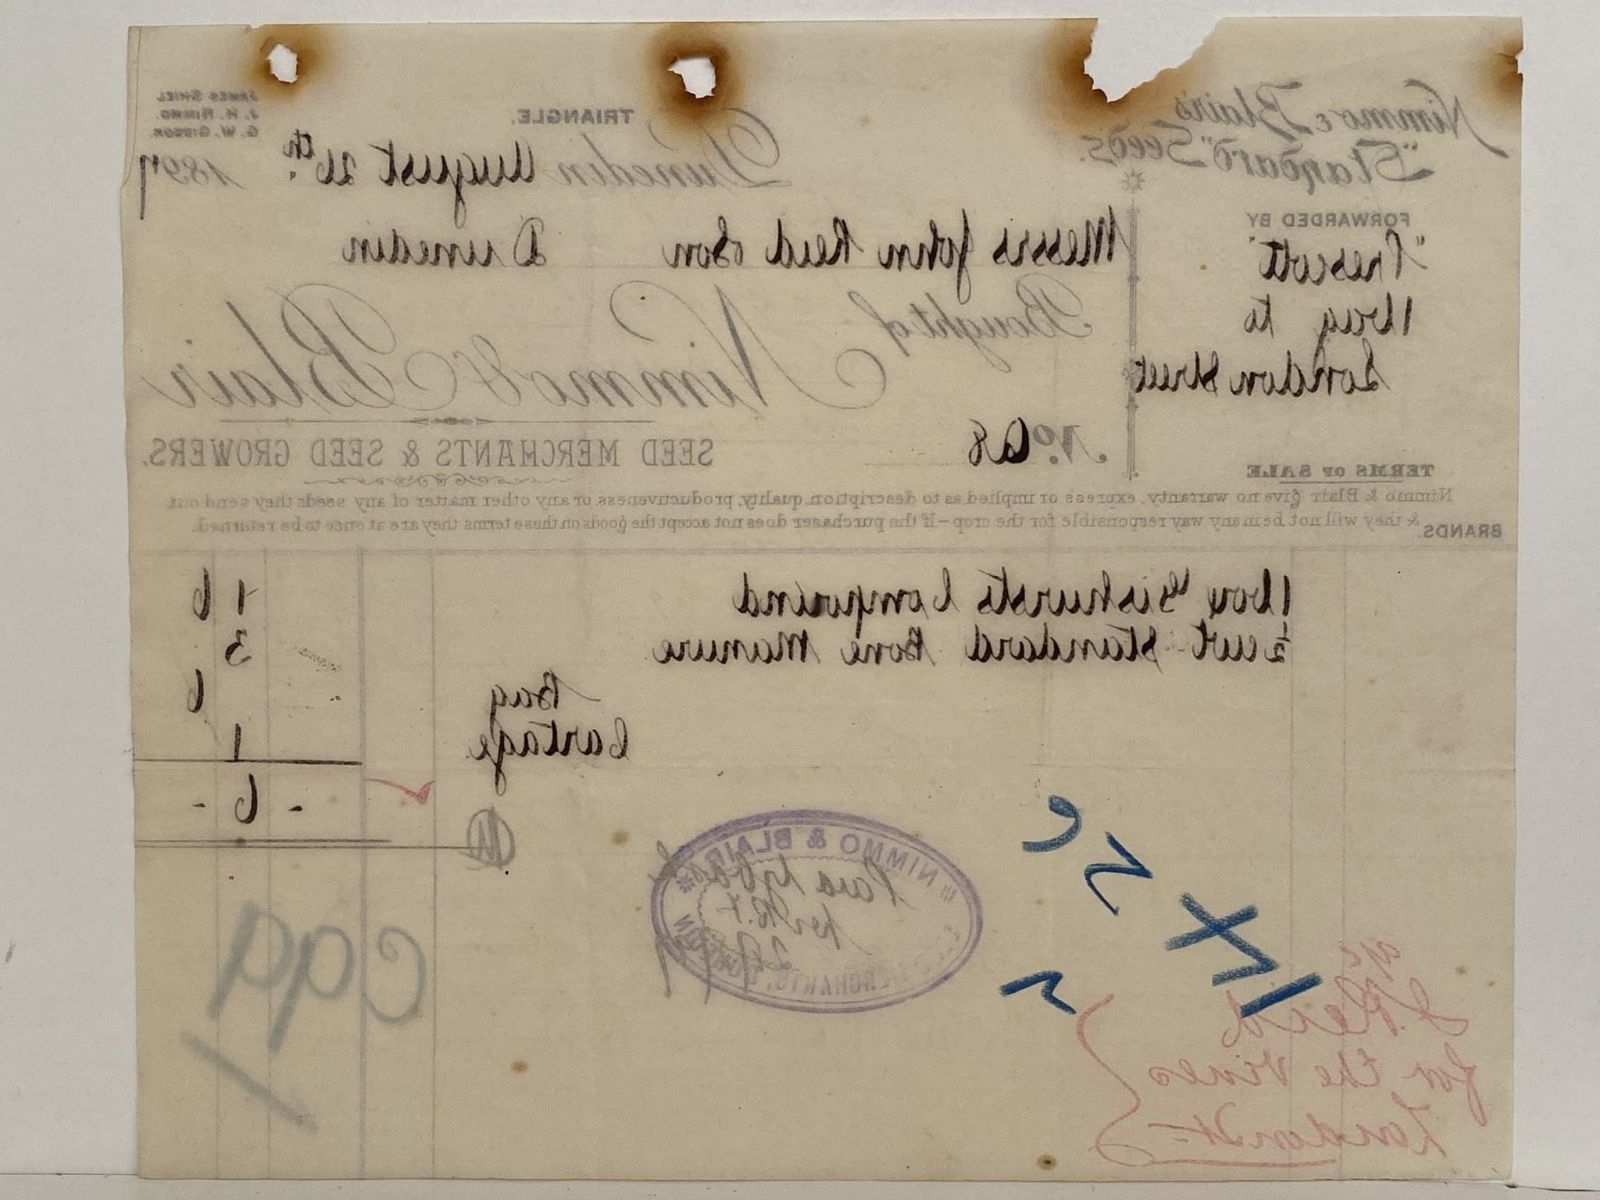 Nimmo & Blair's
"Standard" Seeds.
TRIANGLE.
JAMES SHIEL
J. H. NIMMO.
G. W. GIBSON.
Dunedin August 26th. 1897
FORWARDED BY
"Prescott"
1 bag to
London Street
Messrs John Reid & Son Dunedin
Bought of
Nimmo & Blair
SEED MERCHANTS & SEED GROWERS.
No. 68
TERMS OF SALE
Nimmo & Blair give no warranty, express or implied as to description quality, productiveness, or any other matter of any seeds they send out
& they will not be in any way responsible for the crop - If the purchaser does not accept the goods on these terms they are at once to be returned.
BRANDS.
1 box Gishursts Compound 1 6
½ cwt Standard Bone Manure 3
Bag 6
Cartage 1
- 6 -
NIMMO & BLAIR
MERCHANTS,
Paid by Cash
C99
a/c
J. Reid
for the Vines
London St